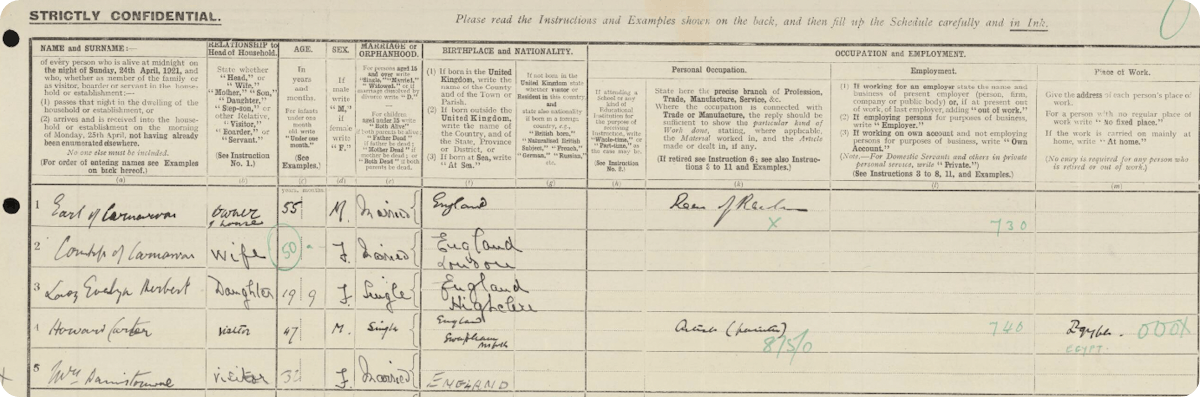 STRICTLY CONFIDENTIAL.
Please read the Instructions and Examples shown on the back, and then fill up the Schedule carefully and in Ink.
NAME and SURNAME:—
of every person who is alive at midnight on
the night of Sunday, 24th April, 1921, and
who, whether as member of the family or
as visitor, boarder or servant in the house-
hold or establishment:—
(1) passes that night in the dwelling of the
household or establishment, or
(2) arrives and is received into the
household or establishment on the morning
of Monday, 25th April, not having already
been enumerated elsewhere.
No one else must be included.
(For order of entering names see Examples
on back hereof.)
(a)
RELATIONSHIP to
Head of Household.
State whether
"Head," or
"Wife,"
"Mother," "Son,"
"Daughter,"
"Step-son," or
other Relative,
"Visitor,"
"Boarder," or
"Servant."
(See Instruction
No. 1.)
AGE.
In
years
and
months.
(See
Examples.)
years. months
SEX.
If
male
write
"M."
If
female
write
"F."
(d)
MARRIAGE or
ORPHANHOOD.
For persons aged 15
and over write
(e)
BIRTHPLACE and NATIONALITY.
(1) If born in the United
Kingdom, write the
name of the County
and of the Town or
Parish.
(2) If born outside the
United Kingdom,
write the name of the
Country, and of the
State, Province or
District, or
(3) If born at Sea, write
"At Sea."
(f)
(g)
(See Instruction
No. 2.)
(h)
OCCUPATION and EMPLOYMENT.
Personal Occupation.
State here the precise branch of Profession,
Trade, Manufacture, Service, &c.
Where the occupation is connected with
Trade or Manufacture, the reply should be
sufficient to show the particular kind of
Work done, stating, where applicable,
the Material worked in, and the Article
made or dealt in, if any.
(If retired see Instruction 6; see also Instruc-
tions 5 to 11 and Examples.)
(k)
Employment.
(1) If working for an employer state the name and
business of present employer (person, firm,
company or public body) or, if at present out
of work, of last employer, adding "out of work."
(2) If employing persons for purposes of business,
write "Employer."
(3) If working on own account and not employing
persons for purposes of business, write "Own
Account."
(Note.—For Domestic Servants and others in private
personal service, write "Private.")
(See Instructions 3 to 8, 11, and Examples.)
(l)
Place of Work.
Give the address of each person's place of
work.
For a person with no regular place of
work write "no fixed place."
If the work is carried on mainly at
home, write "At home."
(No entry is required for any person who
is retired or out of work.)
(m)
1 Earl of Carnarvon owner of house 55 M. Married England x 730
2 Countess of Carnarvon Wife 50 F. Married England London
3 Lady Evelyn Herbert Daughter 19 9 F. Single England Highclere
4 Howard Carter visitor 47 M. Single England Swaffham Norfolk Artist (painter) 8/5/0 740 Egypt. EGYPT. 000X
5 Mrs visitor F. Married ENGLAND